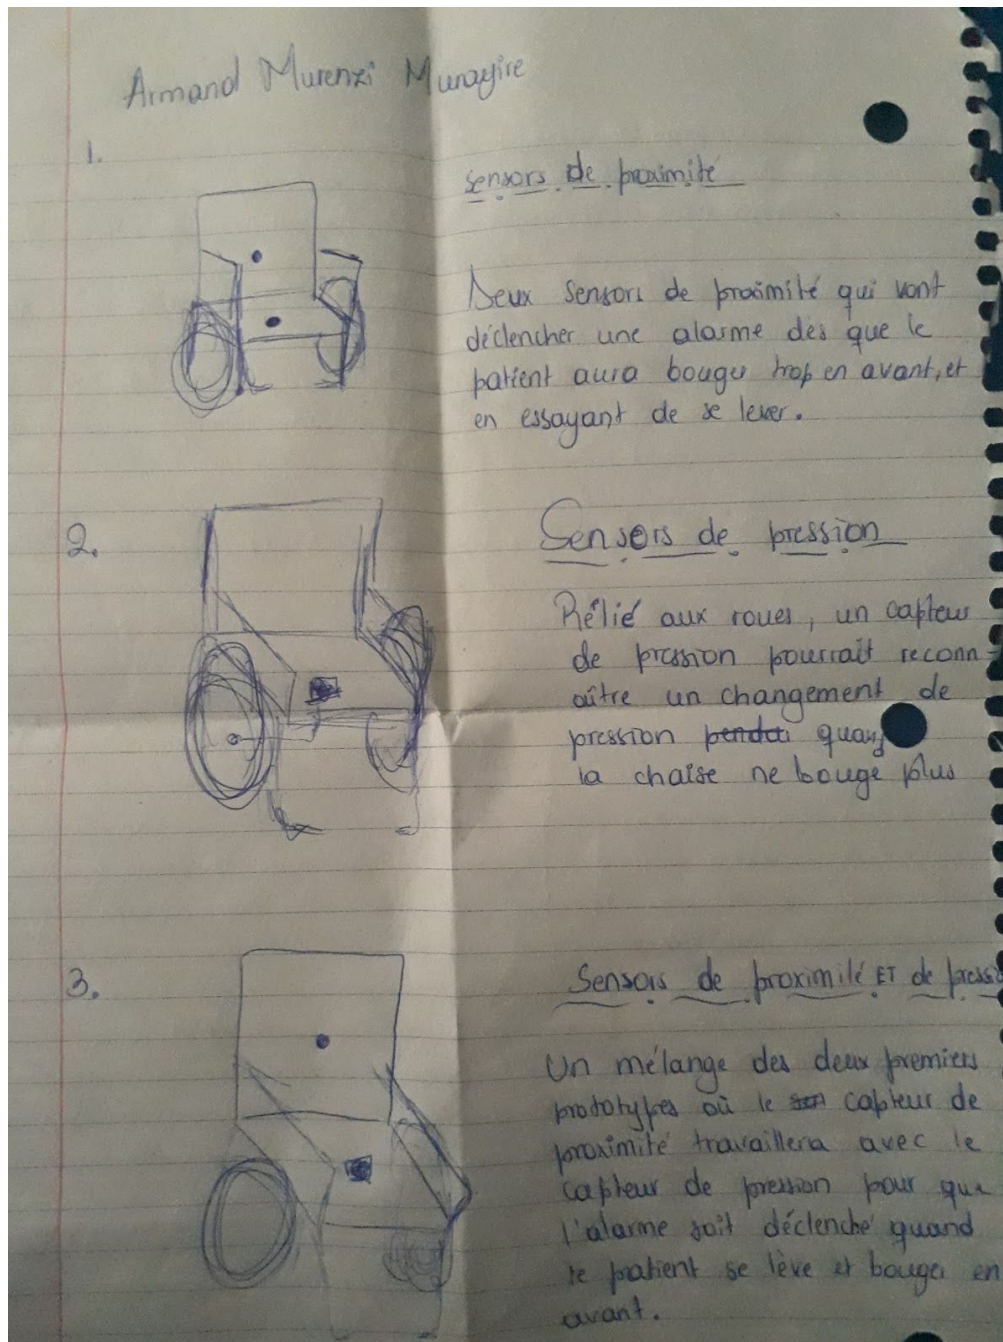 Armand Murenzi Munayire
1.
sensors de proximité
Deux sensors de proximité qui vont
déclencher une alarme dès que le
patient aura bouger trop en avant, et
en essayant de se lever.
2.
Sensors de pression
Rélié aux roues, un capteur
de pression pourrait reconn-
aître un changement de
pression quand
la chaise ne bouge plus
3.
Sensors de proximité ET de pressio
Un mélange des deux premiers
prototypes où le capteur de
proximité travaillera avec le
capteur de pression pour que
l'alarme soit déclenché quand
le patient se lève et bouger en
avant.